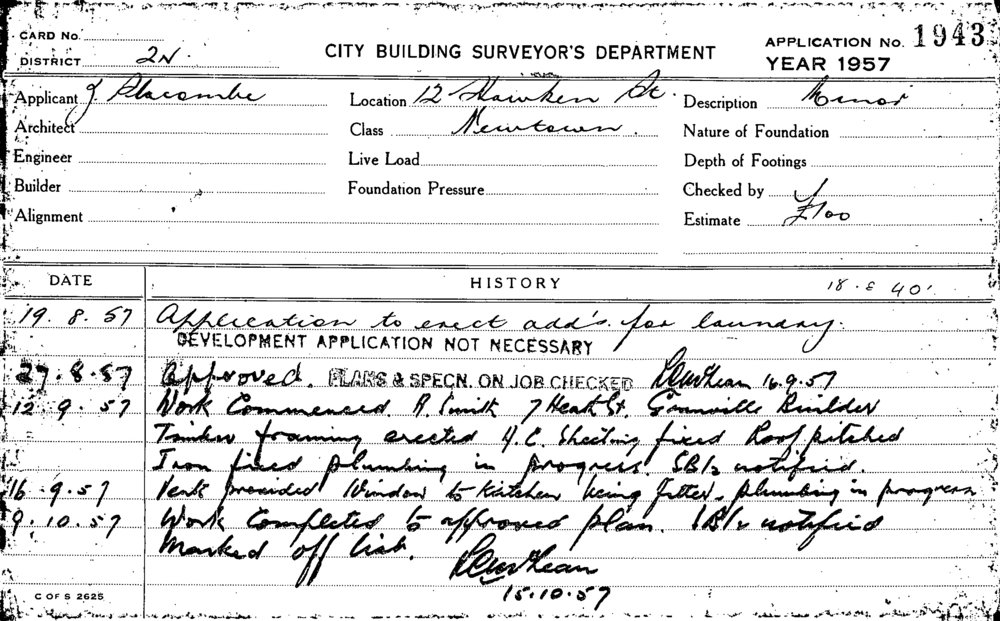 CARD No.
DISTRICT 2N
CITY BUILDING SURVEYOR'S DEPARTMENT
APPLICATION No. 1943
YEAR 1957
Applicant J Slacombe
Location 12 Hawken St.
Description Minor
Architect
Class Newtown.
Nature of Foundation
Engineer
Live Load
Depth of Footings
Builder
Foundation Pressure
Checked by
Alignment
Estimate £100
DATE
HISTORY
18. E 40'
19. 8. 57 Application to erect add's. for laundry.
DEVELOPMENT APPLICATION NOT NECESSARY
27. 8. 57 Approved. PLANS & SPECN. ON JOB CHECKED 16.9.57
12. 9. 57 Work Commenced R. Smith 7 Heath St. Granville Builder
Timber framing erected A.C. Sheeting fixed Roof pitched
Iron fixed plumbing in progress notified.
16. 9. 57 Vent provided Window to Kitchen being fitted. plumbing in progress
9. 10. 57 Work Completed to approved plan. notified
Marked off list.
15.10.57
C OF S 2625